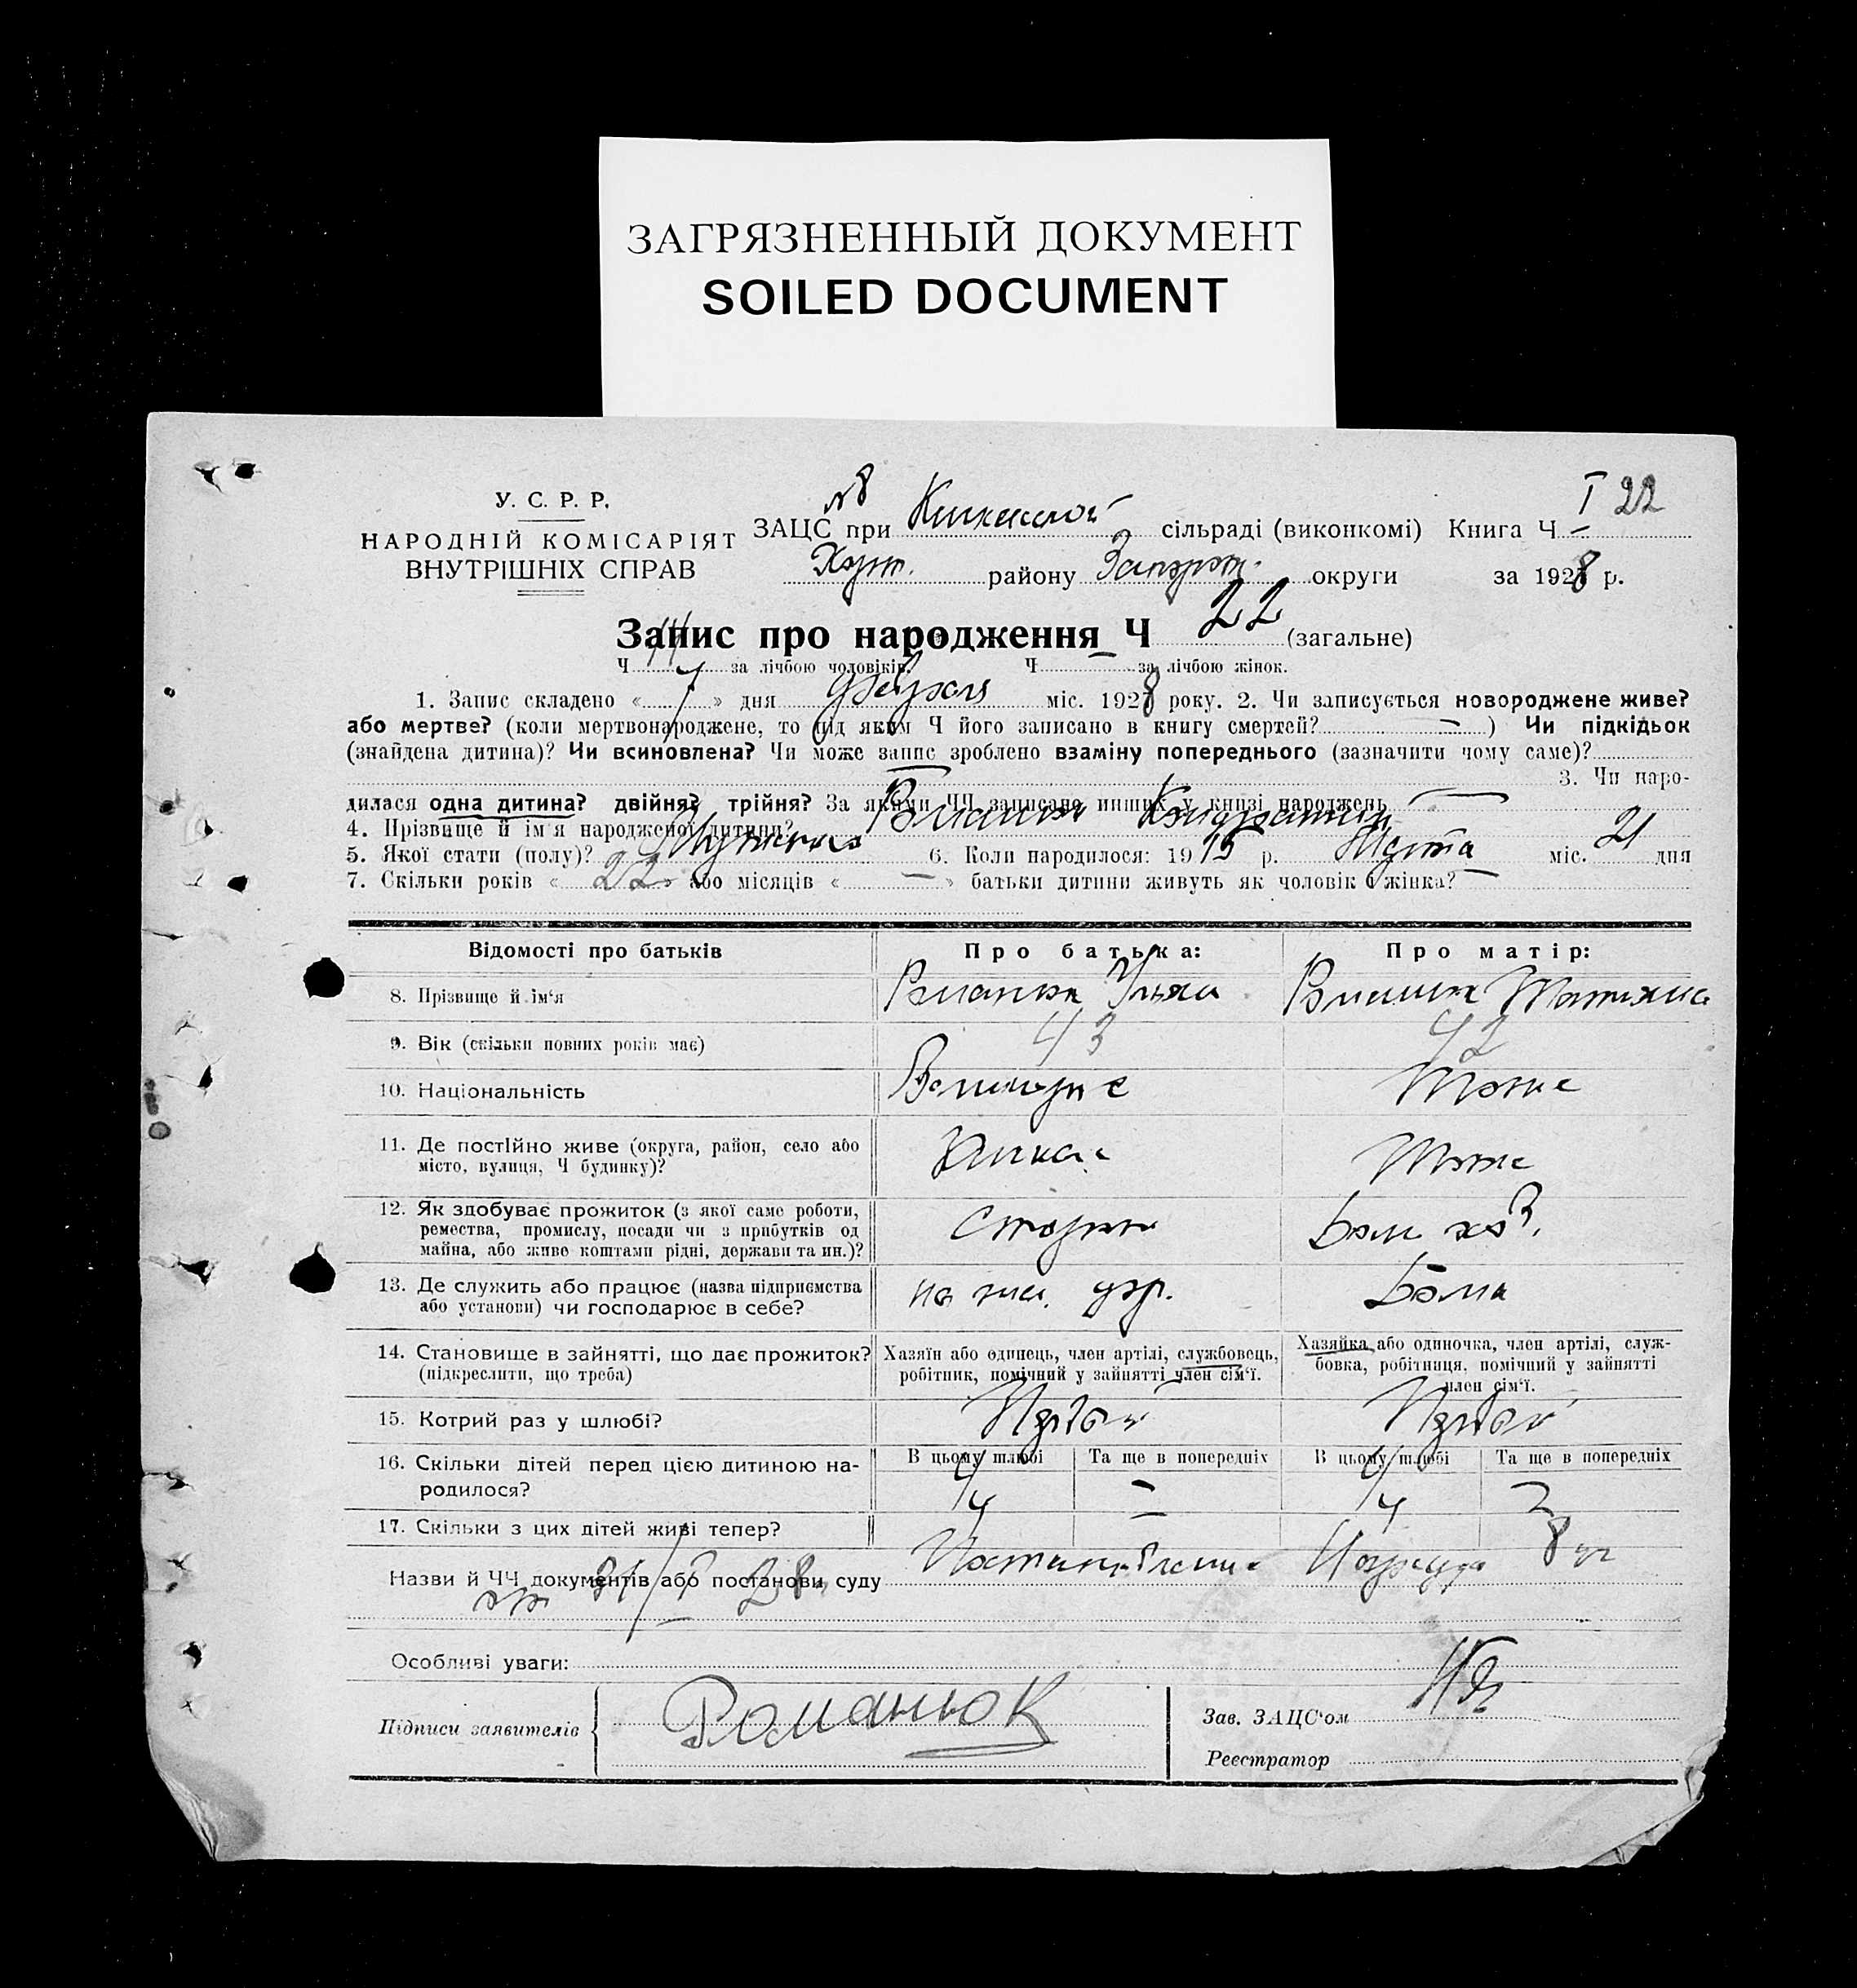 ЗАГРЯЗНЕННЫЙ ДОКУМЕНТ
SOILED DOCUMENT
I 22
У. С. Р. Р.
НАРОДНІЙ КОМІСАРІЯТ
ВНУТРІШНІХ СПРАВ
№8
ЗАЦС при сільраді (виконкомі) Книга Ч
району Запорож. округи за 1928 р.
Запис про народження Ч 22 (загальне)
Ч за лічбою чоловіків. Ч — за лічбою жінок.
1. Запис складено « 7 » дня міс. 1928 року. 2. Чи записується новороджене живе?
або мертве? (коли мертвонароджене, то під яким Ч його записано в книгу смертей? — ) Чи підкідьок
(знайдена дитина)? Чи всиновлена? Чи може запис зроблено взаміну попереднього (зазначити чому саме)?
— 3. Чи наро-
дилася одна дитина? двійня? трійня? За якими ЧЧ записано инших у книзі народжень —
4. Прізвище й ім'я народженої дитини? Романюк
5. Якої стати (полу)? 6. Коли народилося: 1915 р. Марта міс. 21 дня
7. Скільки років « 22 » або місяців « — » батьки дитини живуть як чоловік і жінка? —
Відомості про батьків Про батька: Про матір:
8. Прізвище й ім'я Романюк Илья Романюк Татьяна
9. Вік (скільки повних років має) 43 42
10. Національність Тоже
11. Де постійно живе (округа, район, село або
місто, вулиця, Ч будинку)? Тоже
12. Як здобуває прожиток (з якої саме роботи,
ремества, промислу, посади чи з прибутків од
майна, або живе коштами рідні, держави та ин.)? Сторож Дом хоз.
13. Де служить або працює (назва підприємства
або установи) чи господарює в себе? на жел. дор. Дома
14. Становище в зайнятті, що дає прожиток?
(підкреслити, що треба)
Хазяїн або одинець, член артілі, службовець,
робітник, помічний у зайнятті член сім'ї.
Хазяйка або одиночка, член артілі, служ-
бовка, робітниця, помічний у зайнятті
член сім'ї.
15. Котрий раз у шлюбі? Первый Первый
16. Скільки дітей перед цією дитиною на-
родилося?
В цьому шлюбі Та ще в попередніх В цьому шлюбі Та ще в попередніх
4 — 4
17. Скільки з цих дітей живі тепер? 4 — 4
Назви й ЧЧ документів або постанови суду Постановление Нарсуда 8 уч
Особливі уваги:
Підписи заявителів Романюк
Зав. ЗАЦС'ом
Реєстратор